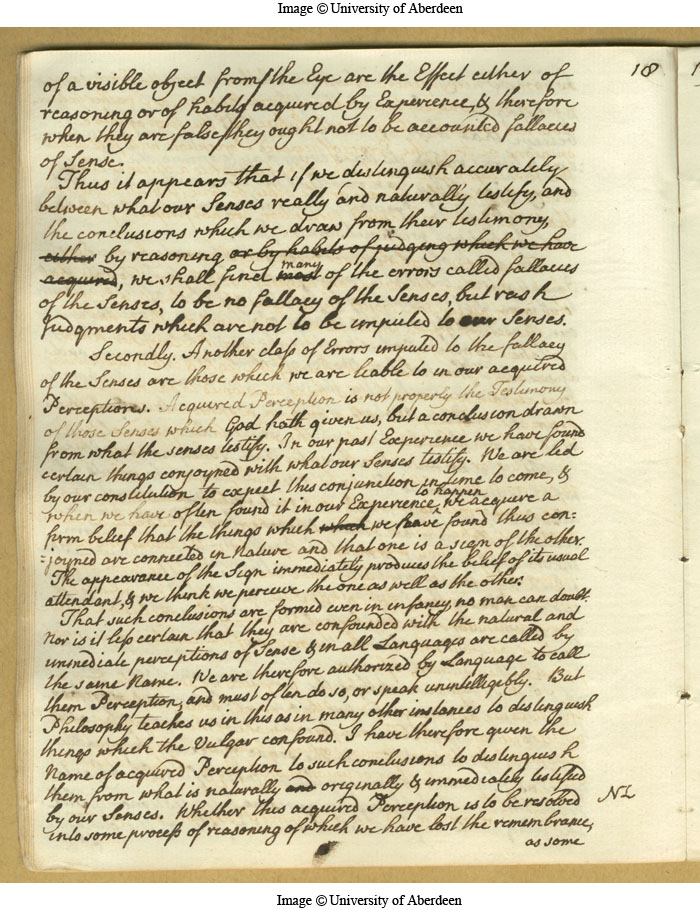 Image © University of Aberdeen
18
of a visible object from the Eye are the Effect either of
reasoning or of habits acquired by Experience, & therefore
when they are false they ought not to be accounted fallacies
of Sense.
Thus it appears that if we distinguish accurately
between what our Senses really and naturally testify, and
the conclusions which we draw from their testimony,
either by reasoning or by habits of judging which we have
many
acquired, we shall find most of the errors called fallacies
of the Senses, to be no fallacy of the Senses, but rash
Judgments which are not to be imputed to our Senses.
Secondly. Another class of Errors imputed to the fallacy
of the Senses are those which we are liable to in our acquired
Perceptions. Acquired Perception is not properly the Testimony
of those Senses which God hath given us, but a conclusion drawn
from what the senses testify. In our past Experience we have found
certain things conjoyned with what our Senses testify. We are led
by our constitution to expect this conjunction in time to come, &
to happen
when we have often found it in our Experience, we acquire a
firm belief that the things which which we have found thus con-
=joyned are connected in Nature and that one is a sign of the other.
The appearance of the Sign immediately produces the belief of its usual
attendant, & we think we perceive the one as well as the other.
That such conclusions are formed even in infancy, no man can doubt.
Nor is it less certain that they are confounded with the natural and
immediate perceptions of Sense & in all Languages are called by
the same Name. We are therefore authorized by Language to call
them Perception, and must often do so, or speak unintelligibly. But
Philosophy teaches us in this as in many other instances to distinguish
things which the Vulgar confound. I have therefore given the
Name of acquired Perception to such conclusions to distinguish
them from what is naturally and originally & immediately testified
by our Senses. Whether this acquired Perception is to be resolved
into some process of reasoning of which we have lost the remembrance,
as some
Image © University of Aberdeen